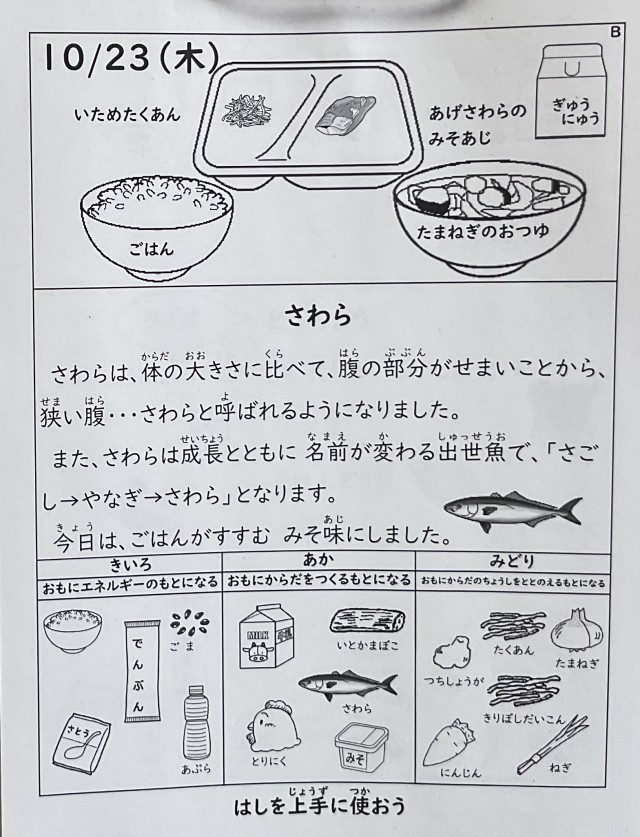 B
10/23(木)
いためたくあん
あげさわらの
みそあじ
ぎゅう
にゅう
ごはん
たまねぎのおつゆ
さわら
さわらは、体の大きさに比べて、腹の部分がせまいことから、
狭い腹・・・さわらと呼ばれるようになりました。
また、さわらは成長とともに 名前が変わる出世魚で、「さご
し→やなぎ→さわら」となります。
今日は、ごはんがすすむ みそ味にしました。
きいろ
おもにエネルギーのもとになる
ごま
でんぷん
さとう
あぶら
あか
おもにからだをつくるもとになる
MILK
いとかまぼこ
さわら
とりにく
みそ
みどり
おもにからだのちょうしをととのえるもとになる
たくあん
たまねぎ
つちしょうが
きりぼしだいこん
にんじん
ねぎ
はしを上手に使おう